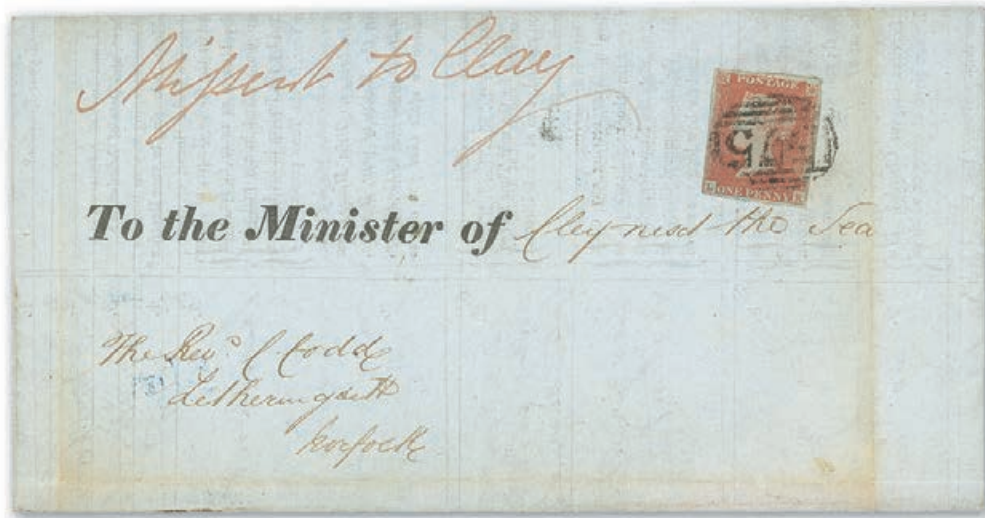 Missent to Clay
POSTAGE
ONE PENNY
To the Minister of Cley next the Sea
The Revd C Codd
Letheringsett
Norfolk